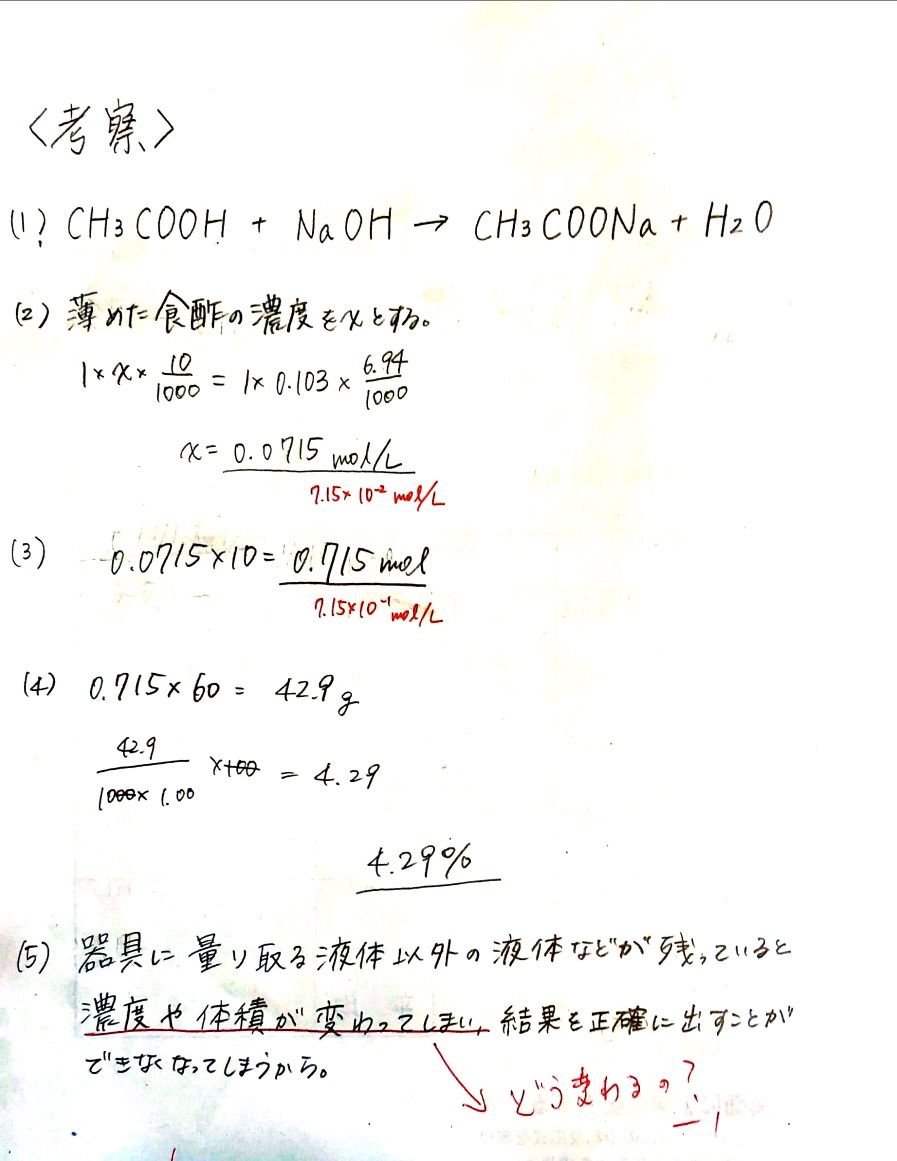 〈考察〉
(1) CH3COOH + NaOH → CH3COONa + H2O
(2) 薄めた食酢の濃度をxとする。
1 × x × 10/1000 = 1 × 0.103 × 6.94/1000
x = 0.0715 mol/L
7.15×10⁻² mol/L
(3) 0.0715×10 = 0.715 mol
7.15×10⁻¹ mol/L
(4) 0.715×60 = 42.9g
42.9/1000×1.00 ×100 = 4.29
4.29%
(5) 器具に量り取る液体以外の液体などが残っていると
濃度や体積が変わってしまい、結果を正確に出すことが
できなくなってしまうから。
どう変わるの?